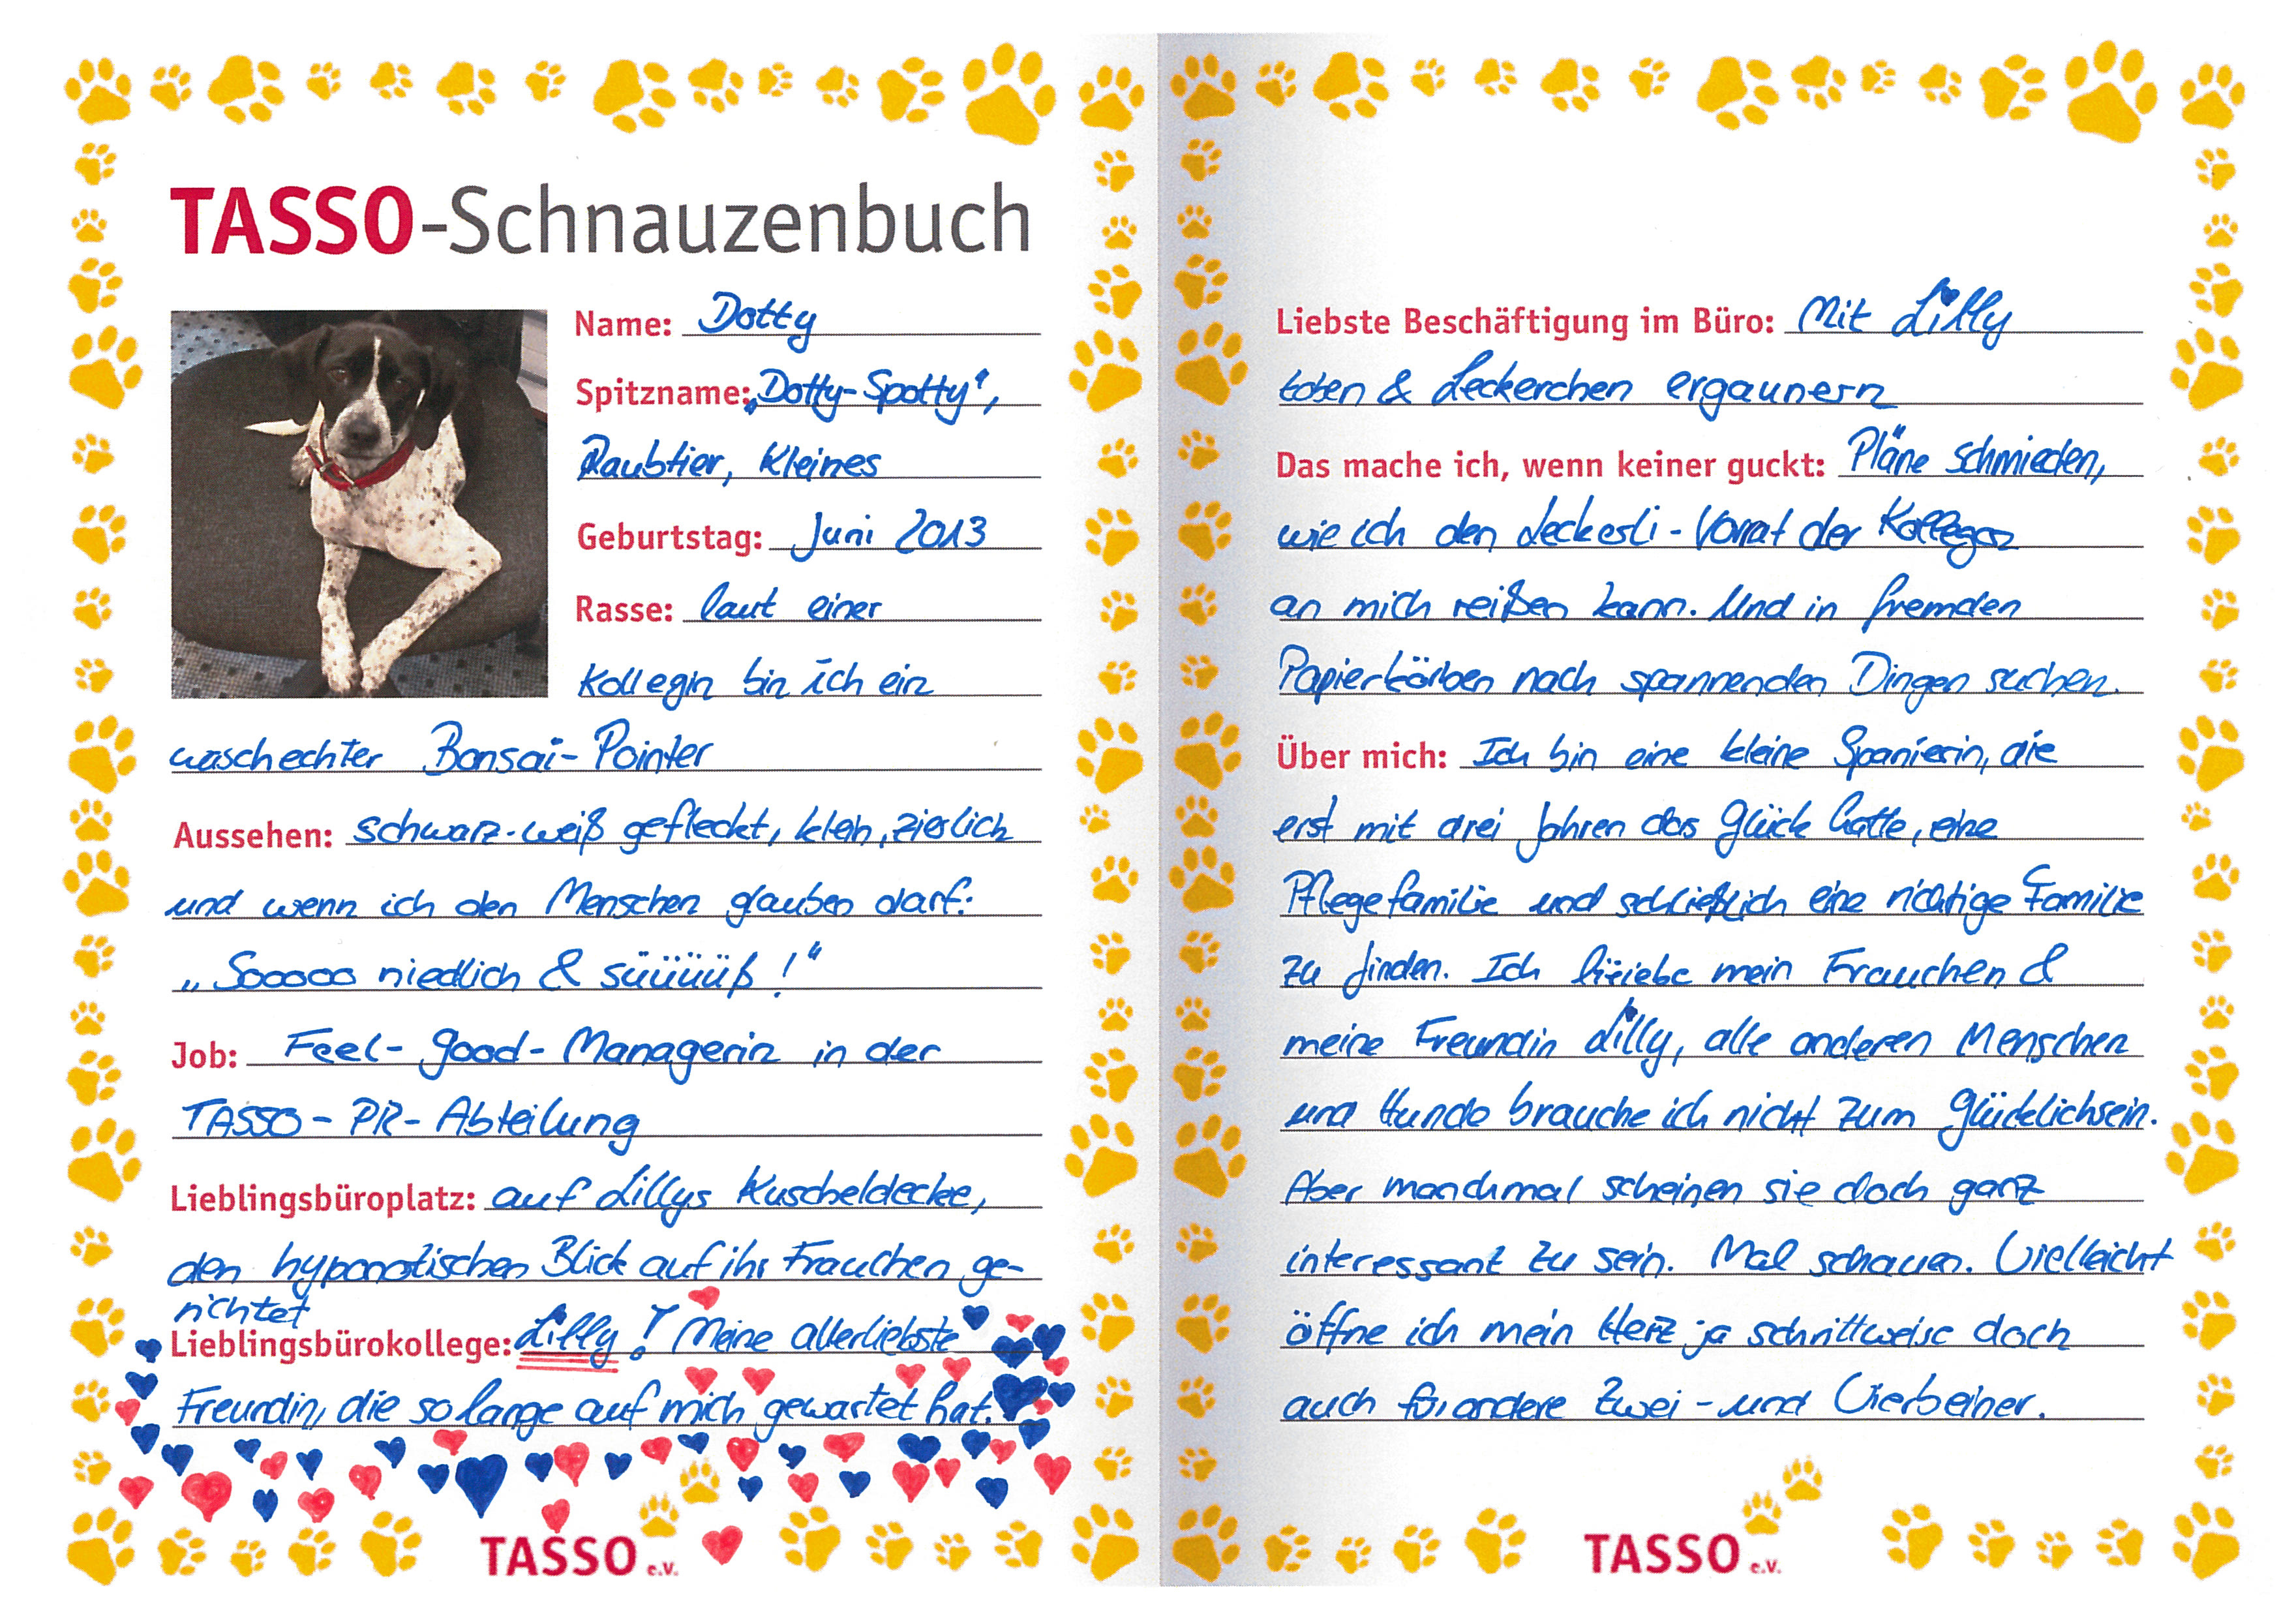 TASSO-Schnauzenbuch
Name: Dotty
Spitzname: „Dotty-Spotty",
Raubtier, Kleines
Geburtstag: Juni 2013
Rasse: laut einer
Kollegin bin ich ein
waschechter Bonsai-Pointer
Aussehen: schwarz-weiß gefleckt, klein, zierlich
und wenn ich den Menschen glauben darf:
„Sooooo niedlich & süüüüüß!"
Job: Feel-good-Managerin in der
TASSO-PR-Abteilung
Lieblingsbüroplatz: auf Lillys Kuscheldecke,
den hypnotischen Blick auf ihr Frauchen ge-
richtet
Lieblingsbürokollege: Lilly! Meine allerliebste
Freundin, die so lange auf mich gewartet hat.
TASSO e.V.
Liebste Beschäftigung im Büro: Mit Lilly
toben & Leckerchen ergaunern
Das mache ich, wenn keiner guckt: Pläne schmieden,
wie ich den Leckerli-Vorrat der Kollegen
an mich reißen kann. Und in fremden
Papierkörben nach spannenden Dingen suchen.
Über mich: Ich bin eine kleine Spanierin, die
erst mit drei Jahren das Glück hatte, eine
Pflegefamilie und schließlich eine richtige Familie
zu finden. Ich liiiebe mein Frauchen &
meine Freundin Lilly, alle anderen Menschen
und Hunde brauche ich nicht zum Glücklichsein.
Aber manchmal scheinen sie doch ganz
interessant zu sein. Mal schauen. Vielleicht
öffne ich mein Herz ja schrittweise doch
auch für andere Zwei- und Vierbeiner.
TASSO e.V.